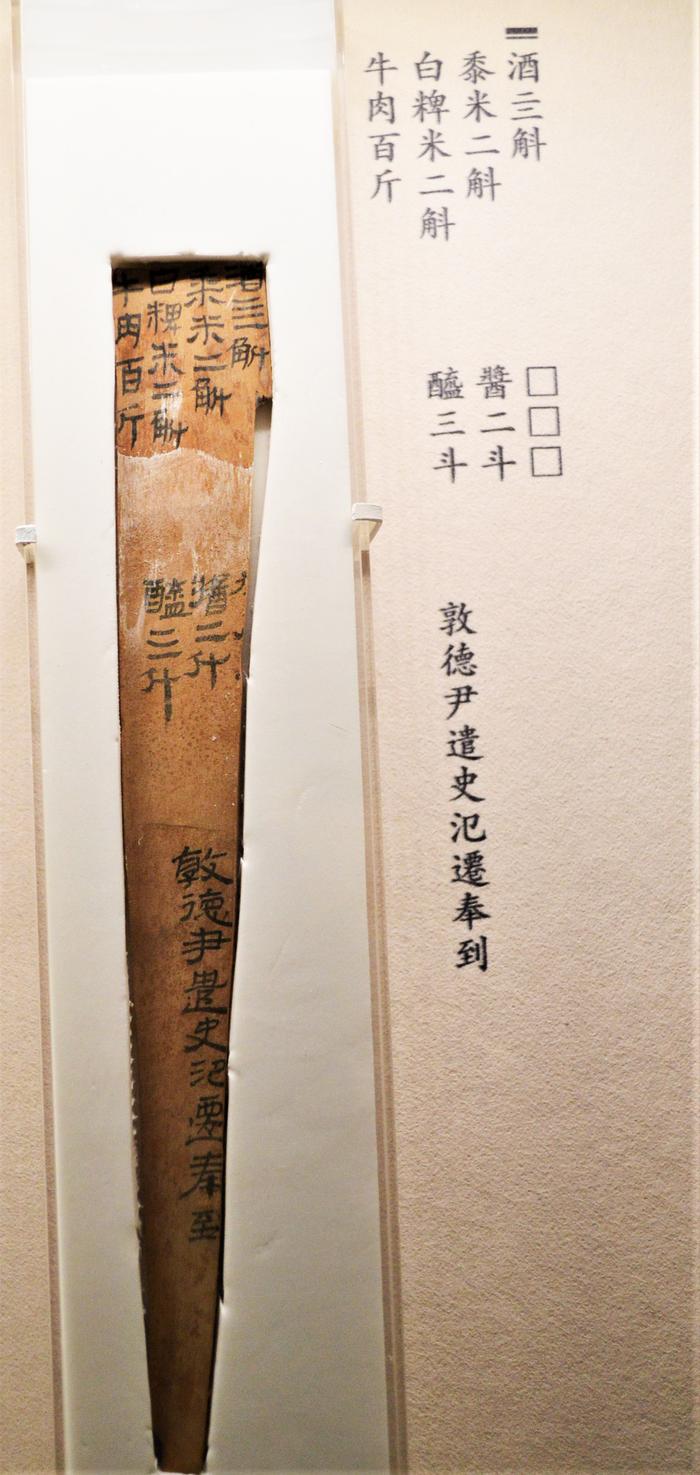 酒亖斛
黍米二斛
白粺米二斛
牛肉百斤
□□□
醬二斗
醯三斗
敦德尹遣史氾遷奉到
酒亖斛
黍米二斛
白粺米二斛
牛肉百斤
醬二斗
醯三斗
敦德尹遣史氾遷奉到